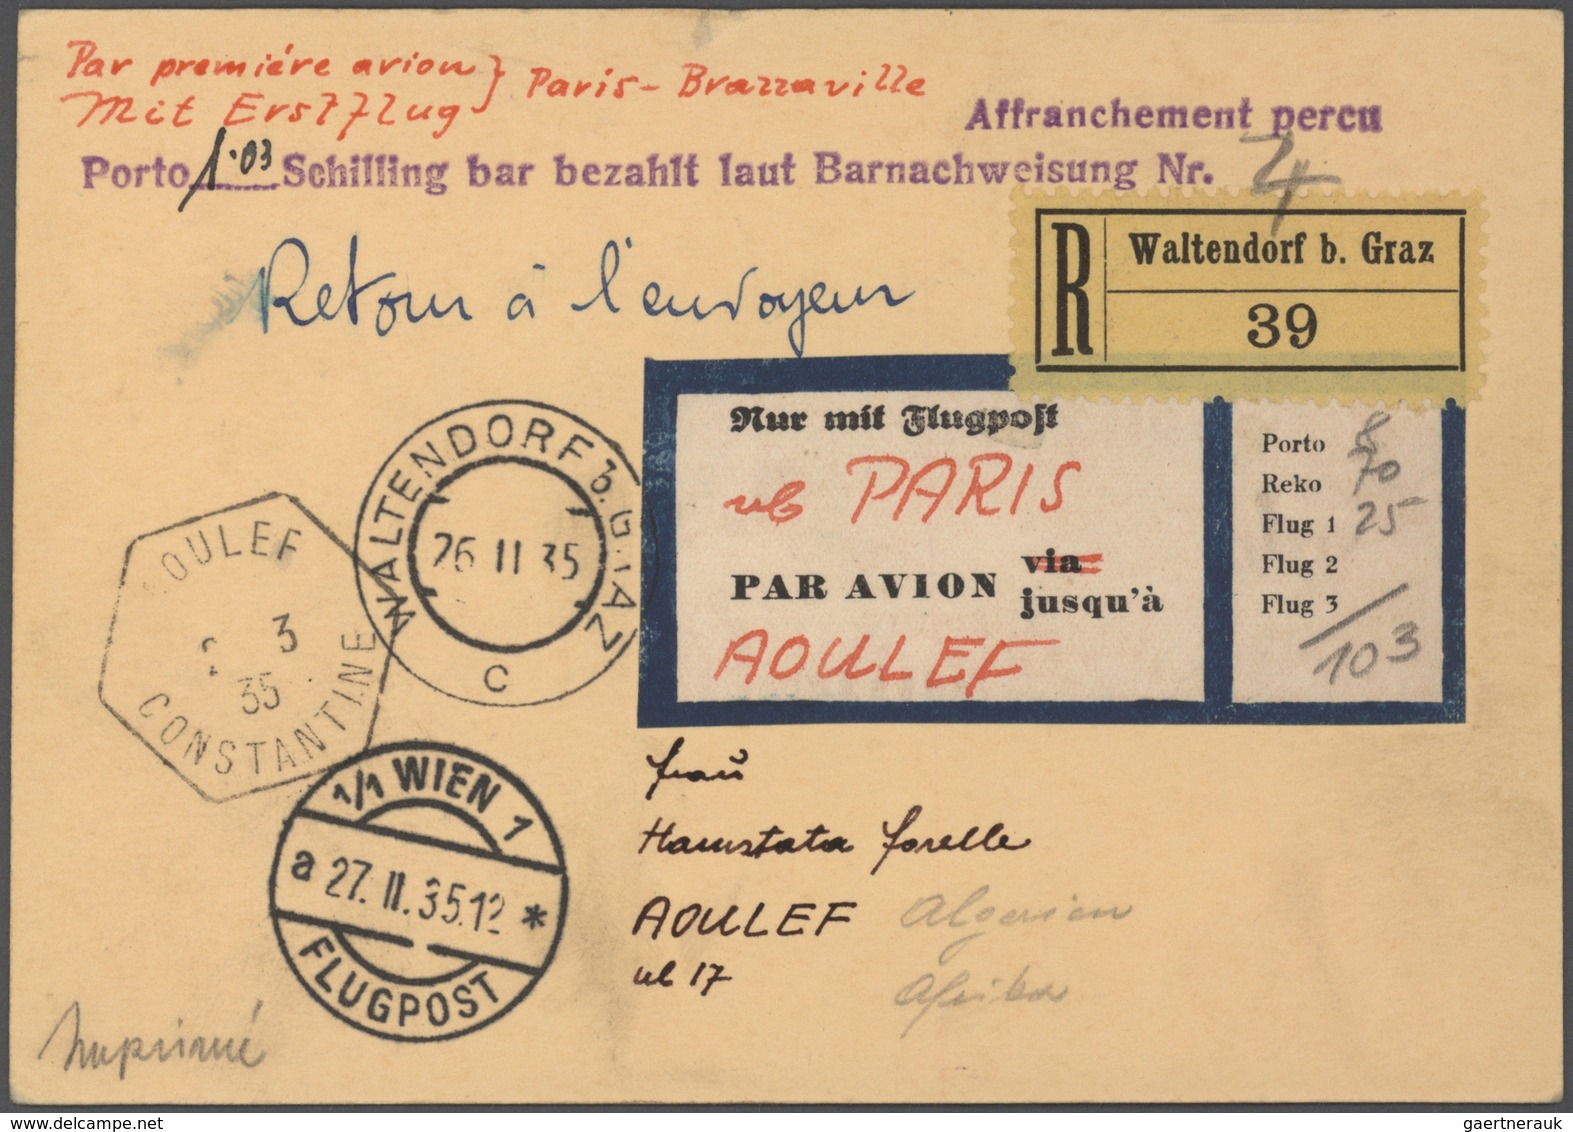 Par premiére avion } Paris - Brazzaville
Mit Erstflug
Affranchement percu
Porto 1·03 Schilling bar bezahlt laut Barnachweisung Nr. 4
Retour à l'envoyeur
R Waltendorf b. Graz
39
Nur mit Flugpost
PARIS
PAR AVION via
jusqu'à
AOULEF
Porto 8
Reko 70
Flug 1 25
Flug 2
Flug 3
103
WALTENDORF b. GRAZ
26 II 35
C
AOULEF
2 3
35
CONSTANTINE
1/1 WIEN 1
a 27. II. 35.12 *
FLUGPOST
Frau
Forelle
AOULEF Algerien
17 Afrika
Imprimé
gaertnerauk @ delcampe.net